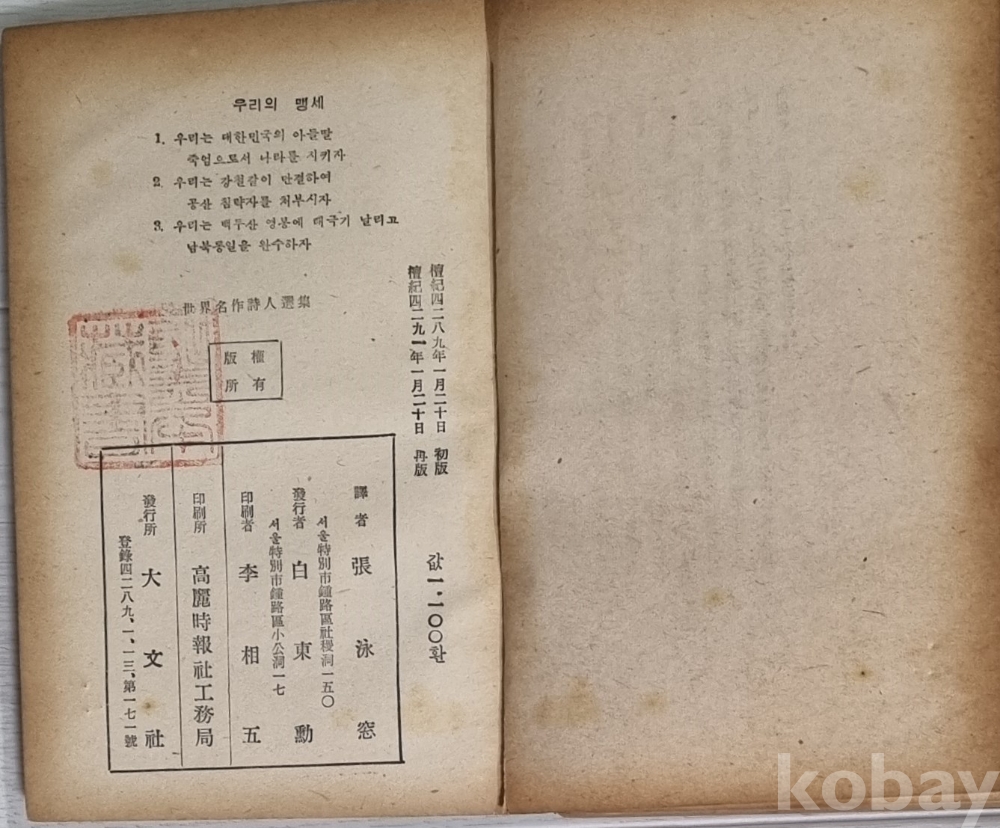 우리의 맹세
1. 우리는 대한민국의 아들딸
죽엄으로서 나라를 지키자
2. 우리는 강철같이 단결하여
공산 침략자를 처부시자
3. 우리는 백두산 영봉에 태극기 날리고
남북통일을 완수하자
世界名作詩人選集
版權
所有
檀紀四二八九年一月二十日 初版
檀紀四二九一年一月二十日 再版
값 一・一〇〇환
譯者 張泳窓
서울特別市鐘路區社稷洞一五〇
發行者 白東勳
서울特別市鐘路區小公洞一七
印刷者 李相五
印刷所 高麗時報社工務局
發行所 大文社
登錄四二八九、一、一三、第一七一號
kobay